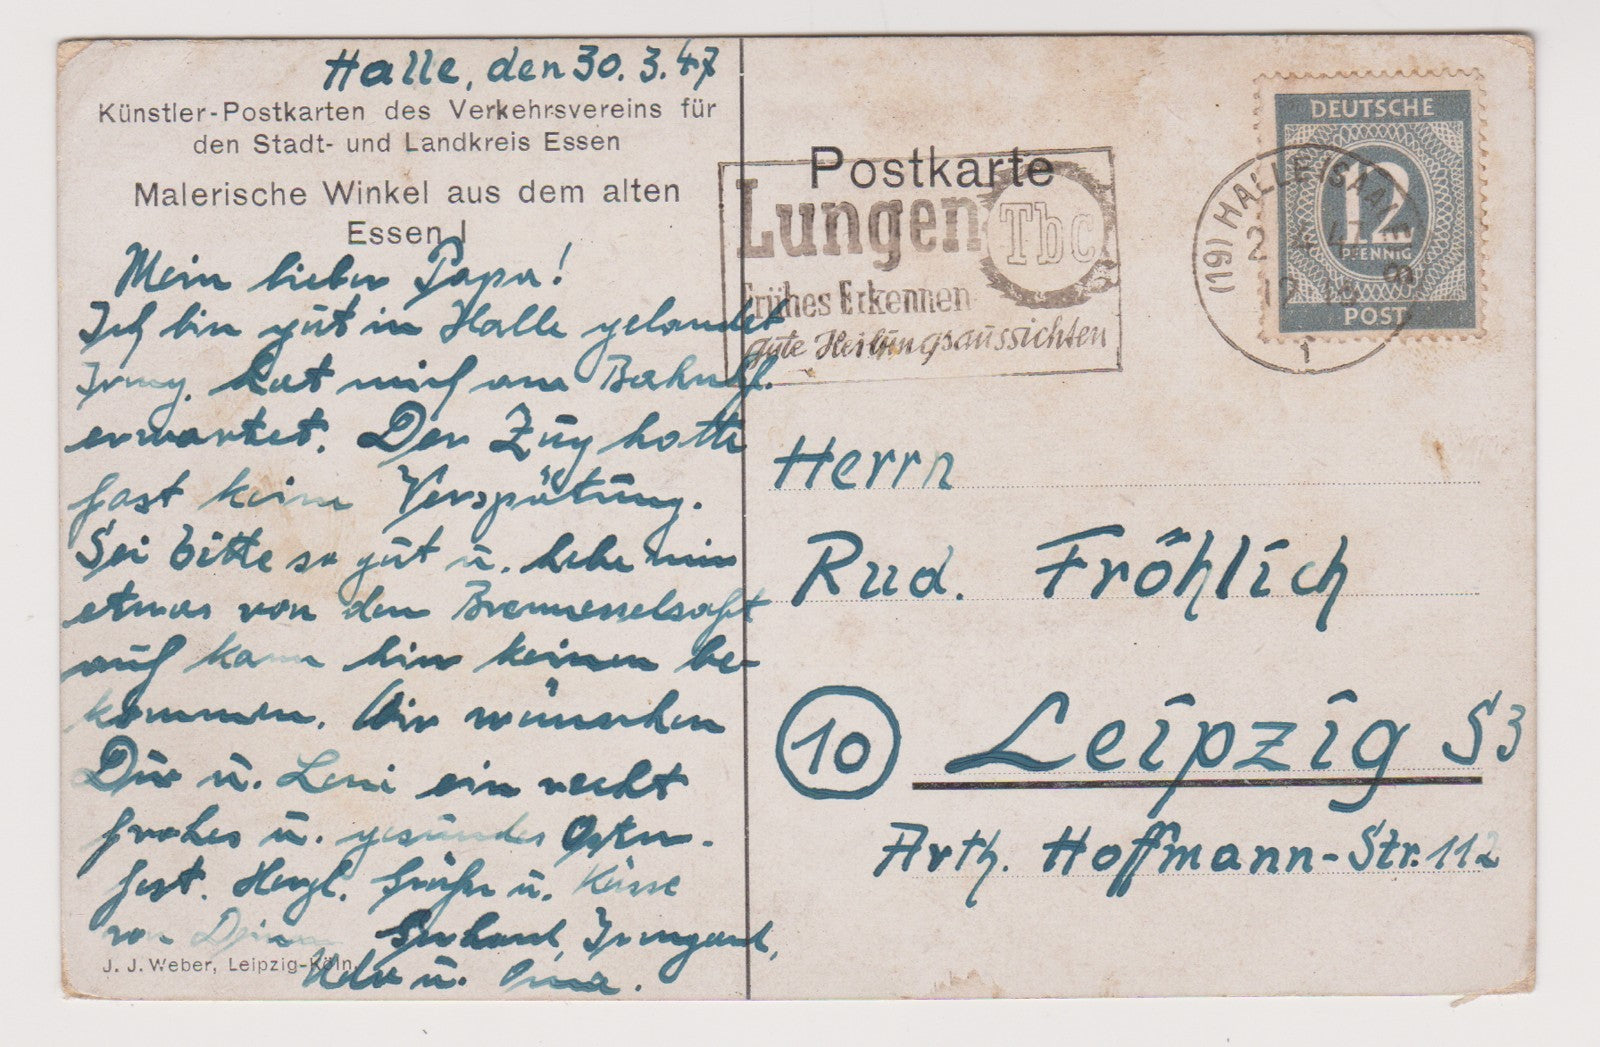 Halle, den 30.3.47
Künstler-Postkarten des Verkehrsvereins für
den Stadt- und Landkreis Essen
Malerische Winkel aus dem alten
Essen I
Mein lieber Papa!
Ich bin gut in Halle gelandet
Irmg. hat mich am Bahnhf.
erwartet. Der Zug hatte
fast keine Verspätung.
Sei bitte so gut u. hebe mir
etwas von dem Brennesselsaft
auf kann hier keinen be-
kommen. Wir wünschen
Dir u. Leni ein recht
frohes u. gesundes Oster-
fest. Herzl. Grüße u. Küsse
von Deinem Gerhard, Irmgard,
Udo u. Oma.
J. J. Weber, Leipzig-Köln
Postkarte
Lungen Tbc
Frühes Erkennen
gute Heilungsaussichten
(19) HALLE (SAALE)
2.4.47
DEUTSCHE
12
PFENNIG
POST
Herrn
Rud. Fröhlich
(10) Leipzig S3
Arth. Hoffmann-Str. 112